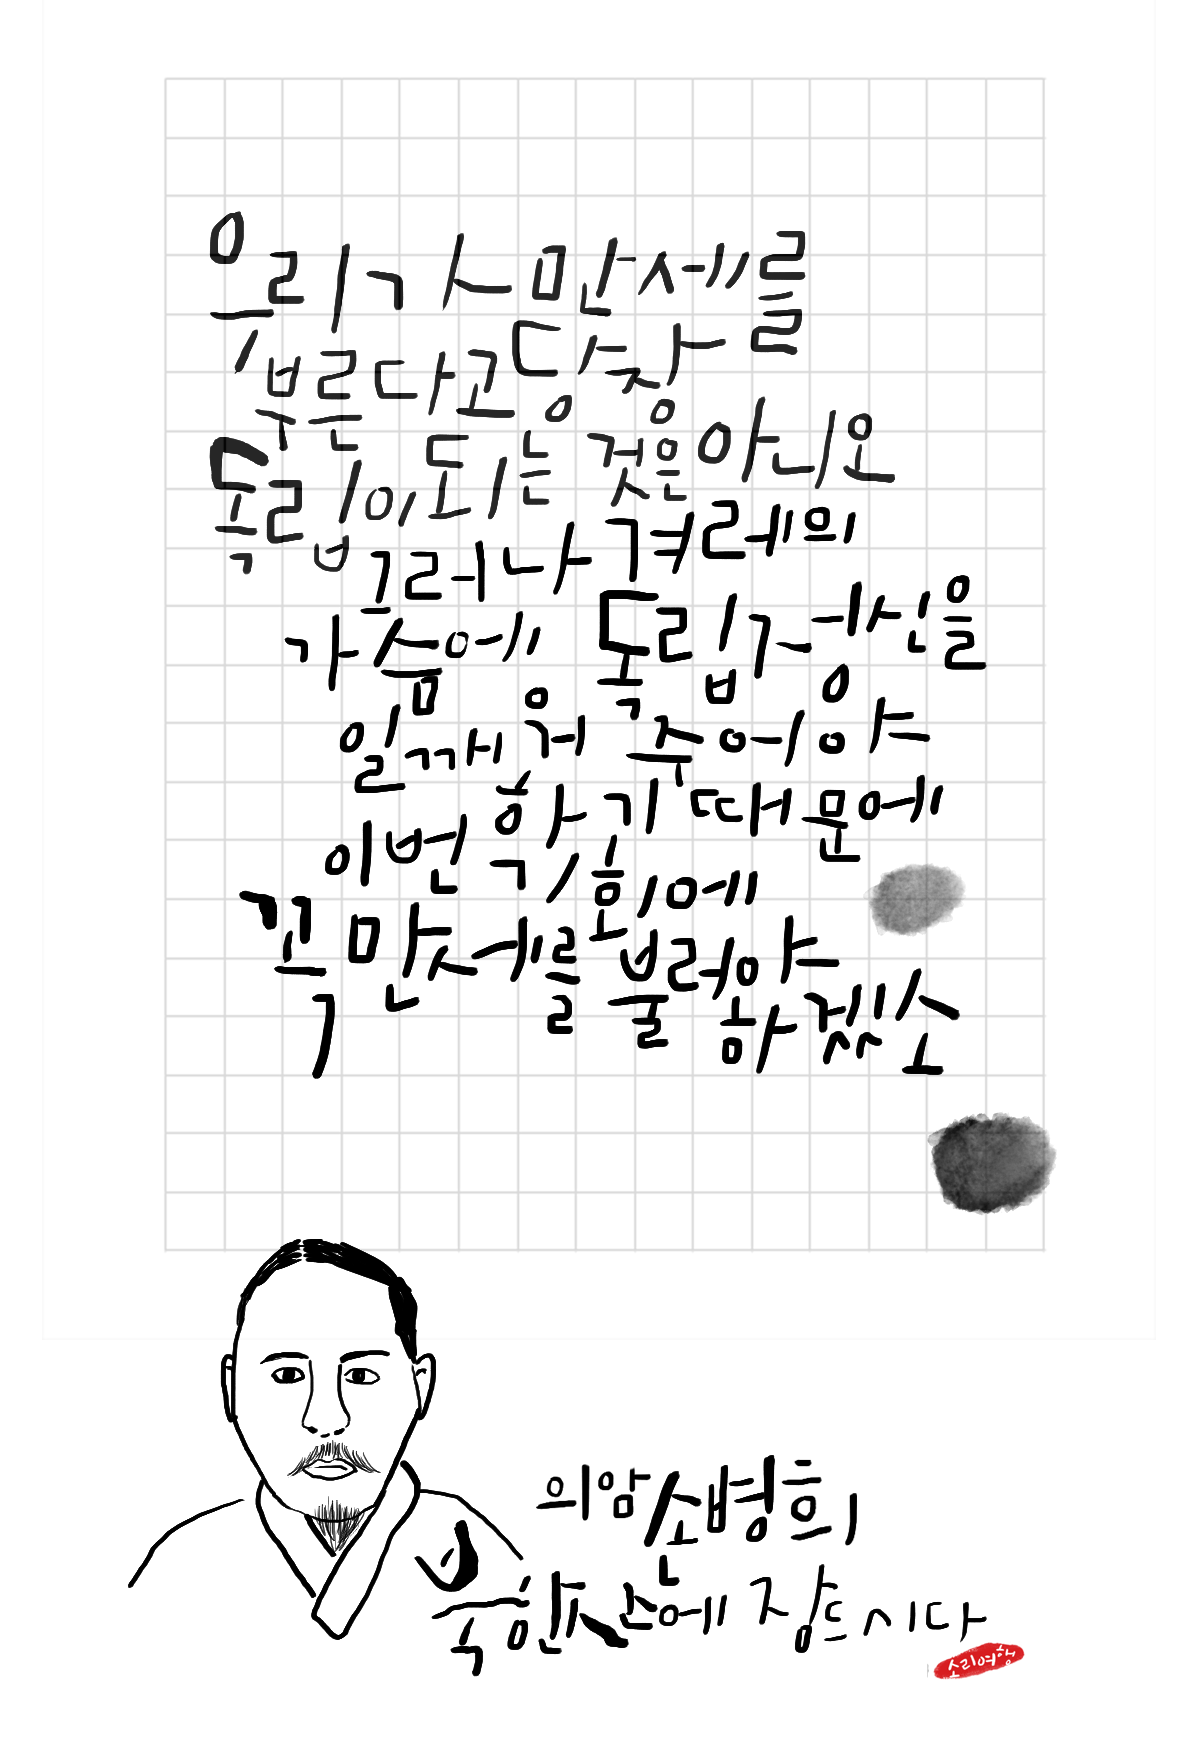 우리가 만세를
부른다고 당장
독립이 되는 것은 아니오
그러나 겨레의
가슴에 독립정신을
일깨워 주어야
하기 때문에
이번 기회에
꼭 만세를 불러야
하겠소
의암 손병희
북한산에 잠드시다
소리여행